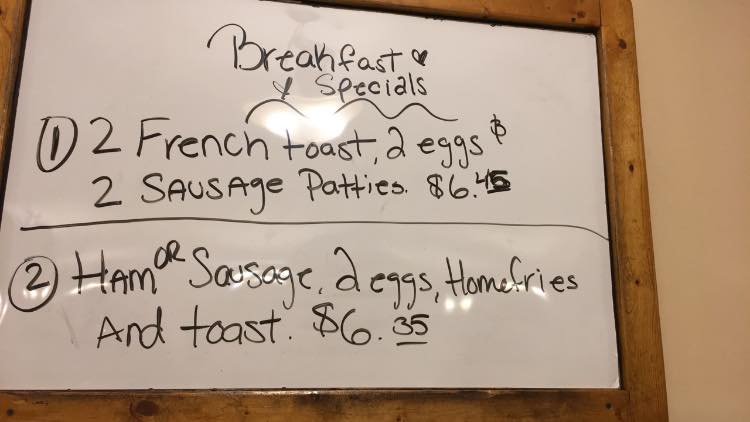 Breakfast
Specials
① 2 French toast, 2 eggs &
2 SAUSAge Patties. $6.45
② HAM OR Sausage, 2 eggs, Homefries
And toast. $6.35